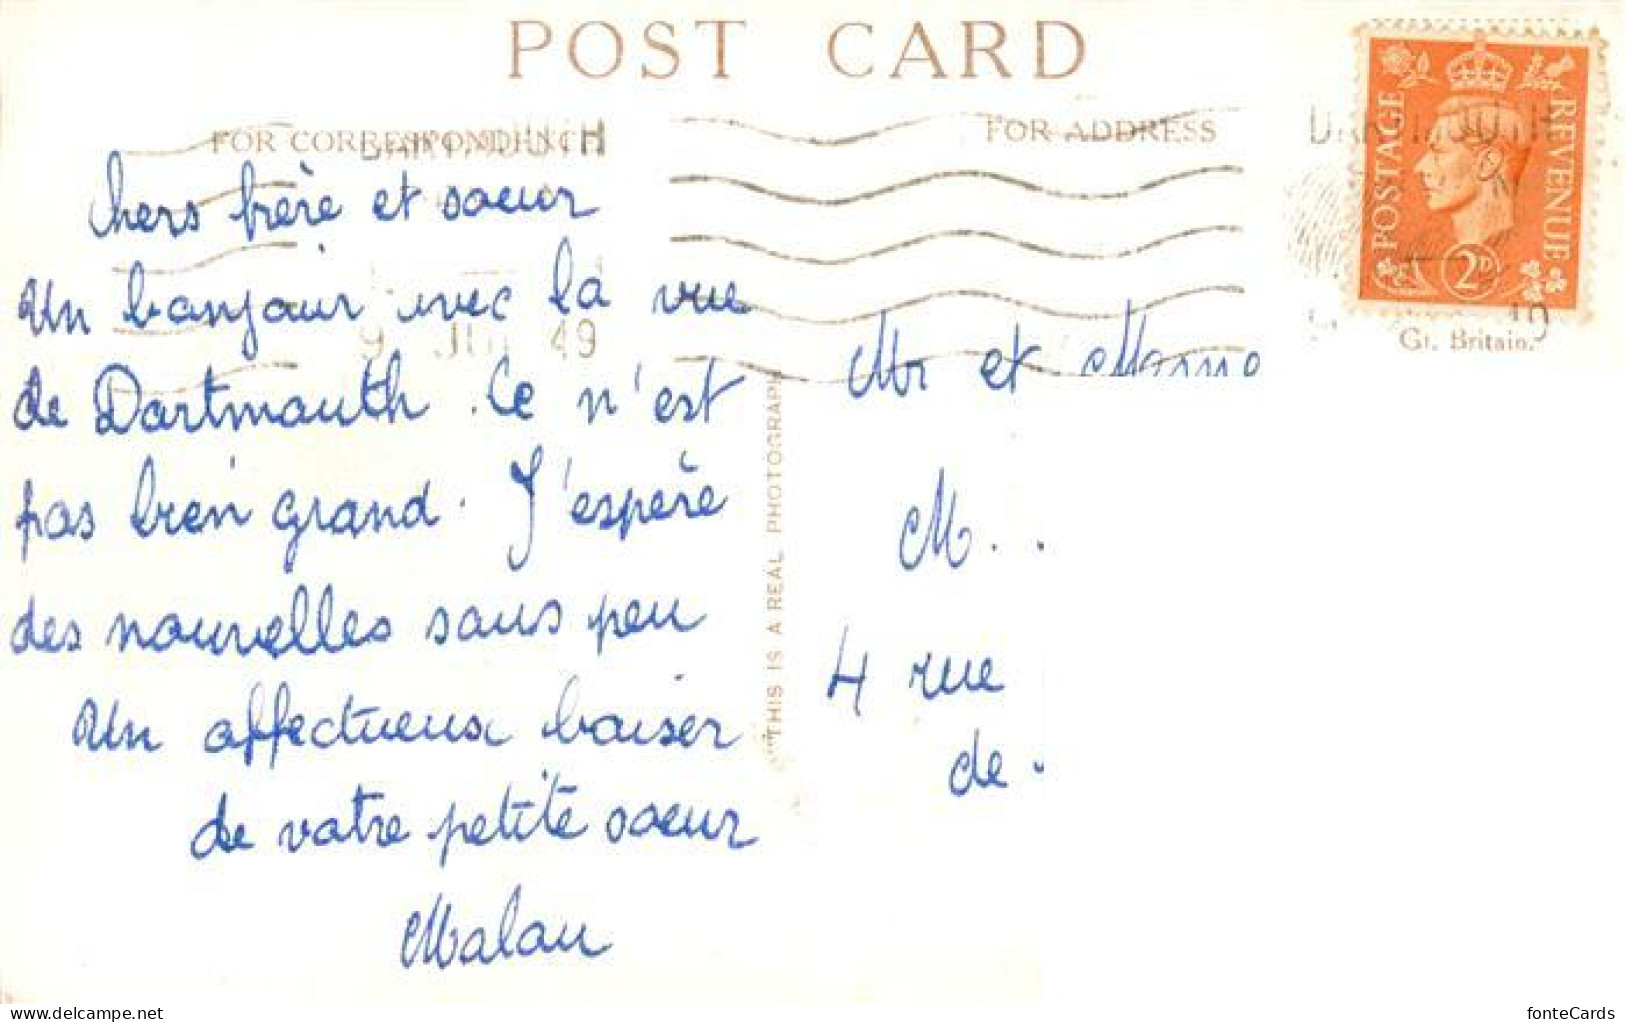 POST CARD
FOR CORRESPONDENCE
FOR ADDRESS
DARTMOUTH
DARTMOUTH
POSTAGE
REVENUE
2D
Gt. Britain.
9 49
chers frère et soeur
Un bonjour avec la vue
de Dartmouth. Ce n'est
pas bien grand. J'espère
des nouvelles sous peu
Un affectueux baiser
de votre petite soeur
Malou
"THIS IS A REAL PHOTOGRAPH
Mr et
M..
4 rue
de.
delcampe.net
fonteCards